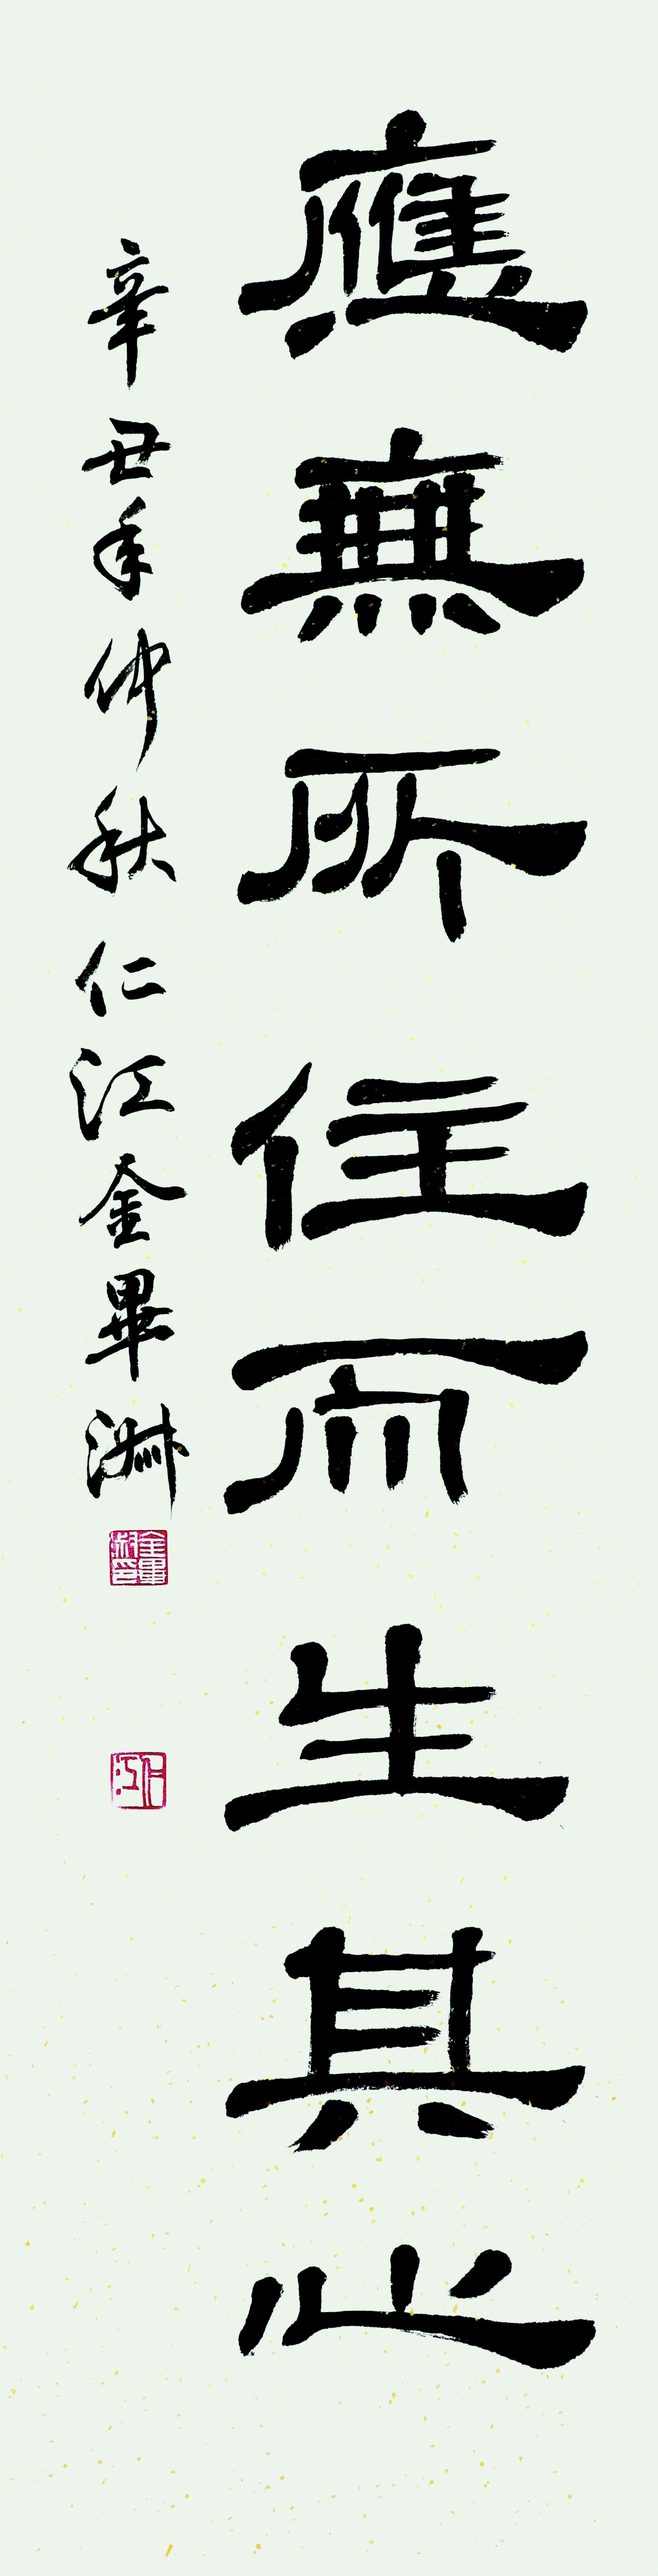 應無所住而生其心
辛丑年仲秋仁江金畢淑
金畢淑印
仁江